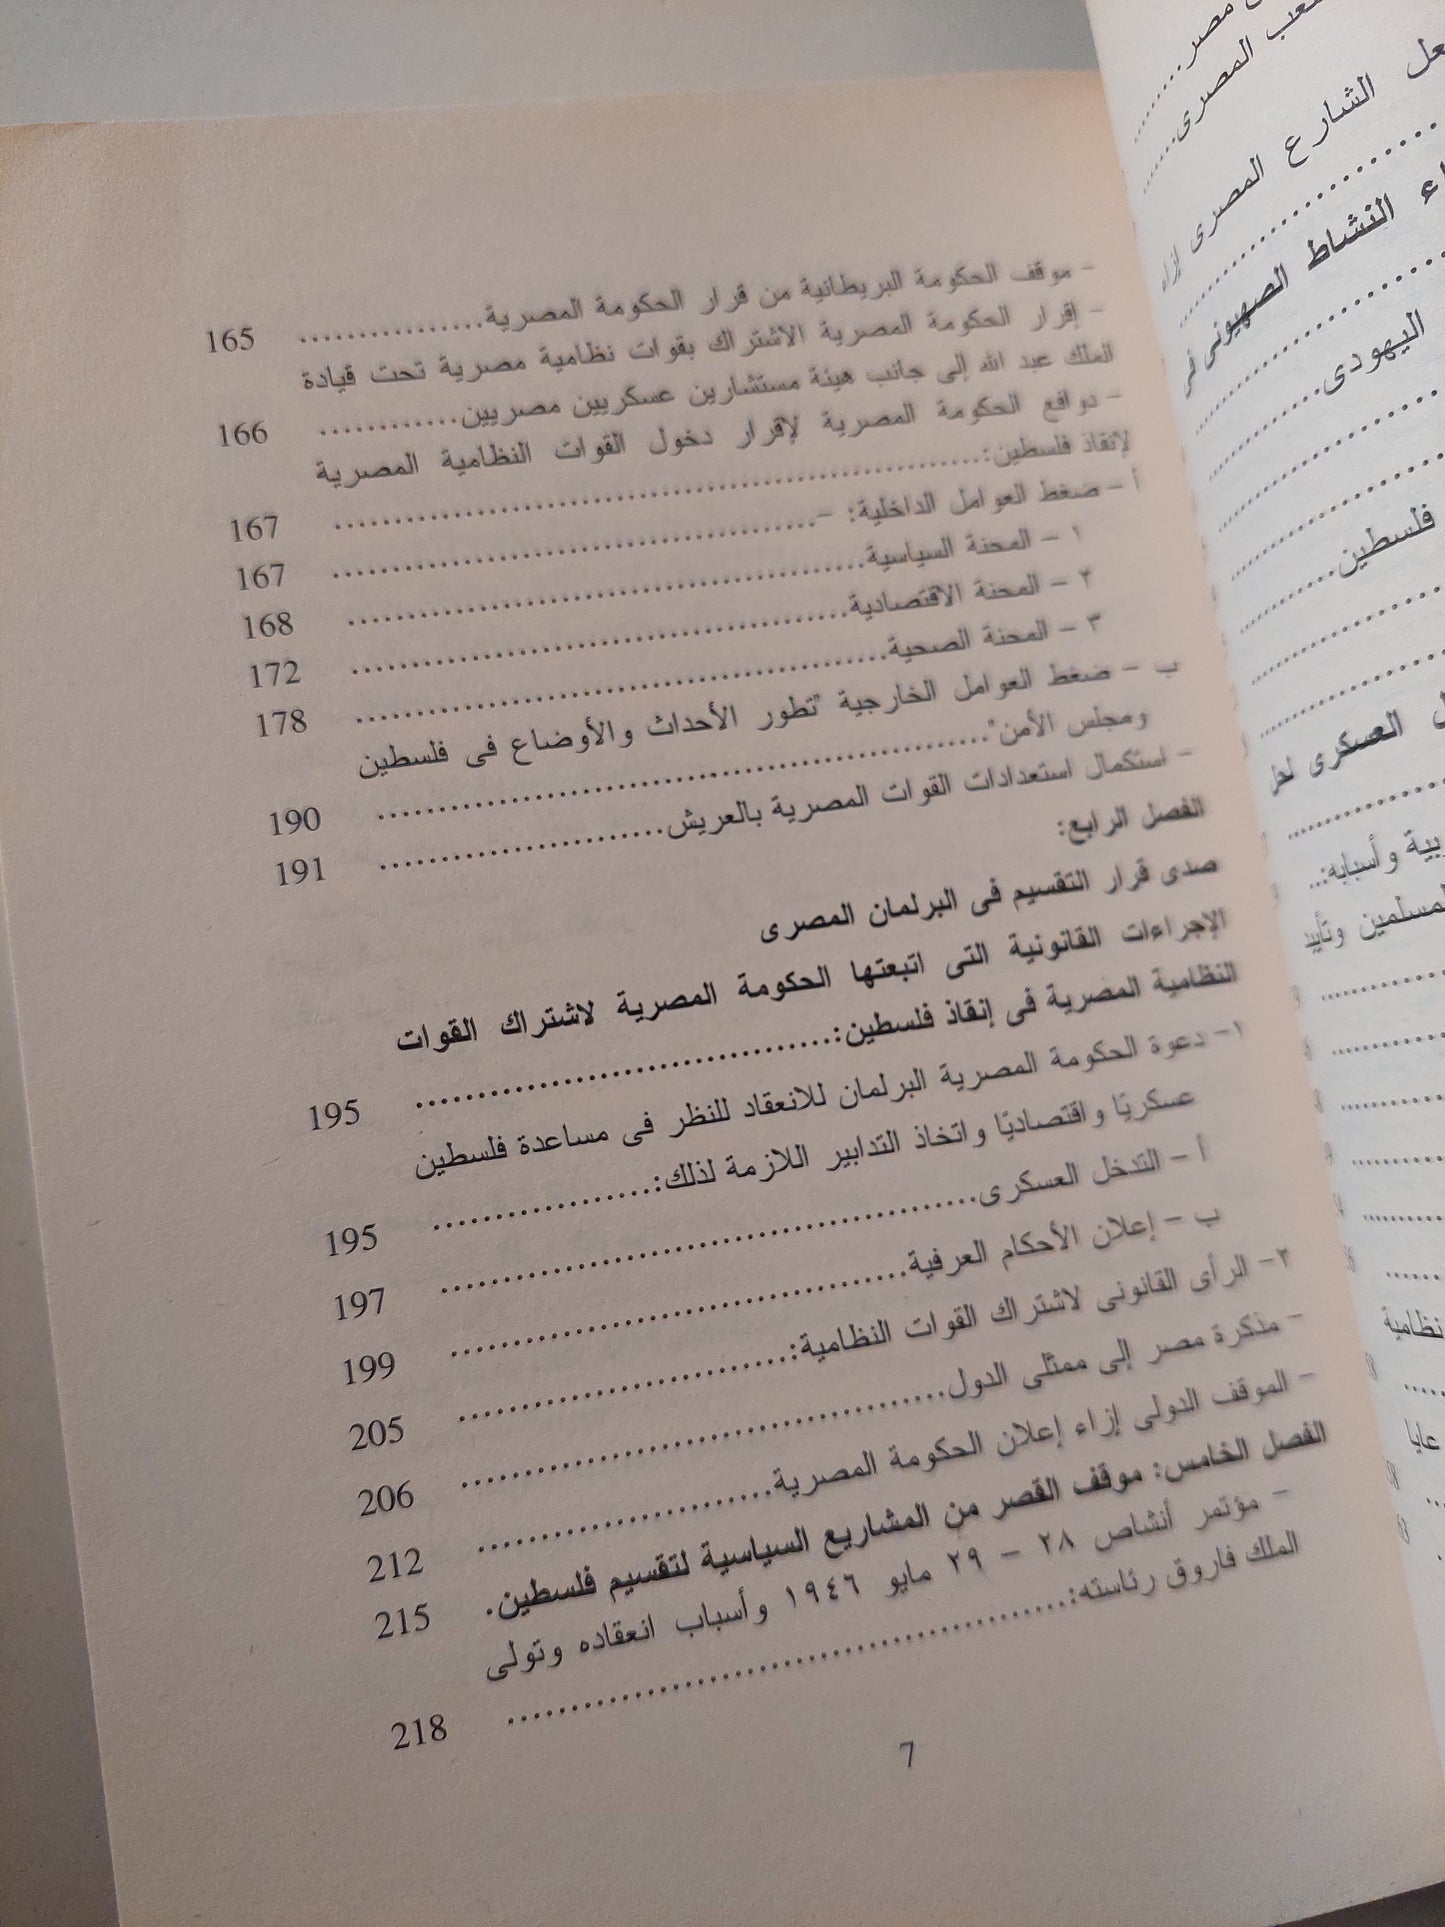 - موقف الحكومة البريطانية من قرار الحكومة المصرية................ 165
- إقرار الحكومة المصرية الاشتراك بقوات نظامية مصرية تحت قيادة
الملك عبد الله إلى جانب هيئة مستشارين عسكريين مصريين............ 166
- دوافع الحكومة المصرية لإقرار دخول القوات النظامية المصرية
لإنقاذ فلسطين:................................................ 167
أ - ضغط العوامل الداخلية: -................................... 167
١ - المحنة السياسية........................................ 168
٢ - المحنة الاقتصادية....................................... 172
٣ - المحنة الصحية.......................................... 178
ب - ضغط العوامل الخارجية "تطور الأحداث والأوضاع فى فلسطين
ومجلس الأمن"............................................. 190
- استكمال استعدادات القوات المصرية بالعريش....................... 191
الفصل الرابع:
صدى قرار التقسيم فى البرلمان المصرى
الإجراءات القانونية التى اتبعتها الحكومة المصرية لاشتراك القوات
النظامية المصرية فى إنقاذ فلسطين:................................ 195
١- دعوة الحكومة المصرية البرلمان للانعقاد للنظر فى مساعدة فلسطين
عسكريًا واقتصاديًا واتخاذ التدابير اللازمة لذلك:.................. 195
أ - التدخل العسكرى.......................................... 197
ب - إعلان الأحكام العرفية.................................... 199
٢- الرأى القانونى لاشتراك القوات النظامية:........................ 205
- مذكرة مصر إلى ممثلى الدول..................................... 206
- الموقف الدولى إزاء إعلان الحكومة المصرية........................ 212
الفصل الخامس: موقف القصر من المشاريع السياسية لتقسيم فلسطين. 215
- مؤتمر أنشاص ٢٨ - ٢٩ مايو ١٩٤٦ وأسباب انعقاده وتولى
الملك فاروق رئاسته:.......................................... 218
7
مصر.......
المصرى.......
الشارع المصرى إزاء
النشاط الصهيونى فى
اليهودى..........
فلسطين..........
العسكرى لحل
وأسبابه:...
المسلمين وتأييد